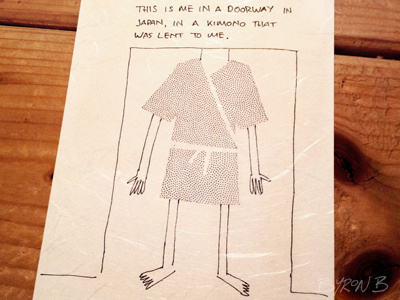 THIS IS ME IN A DOORWAY IN
JAPAN, IN A KIMONO THAT
WAS LENT TO ME.
BYRON B